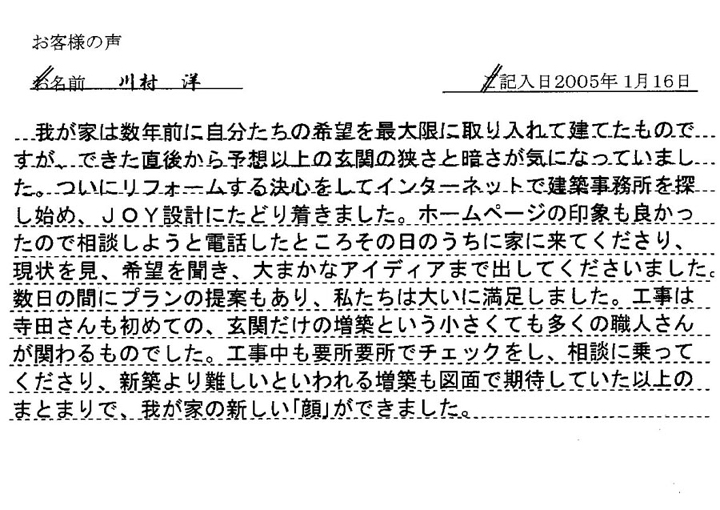 お客様の声
お名前 川村 洋
ご記入日2005年1月16日
我が家は数年前に自分たちの希望を最大限に取り入れて建てたもので
すが、できた直後から予想以上の玄関の狭さと暗さが気になっていまし
た。ついにリフォームする決心をしてインターネットで建築事務所を探
し始め、JOY設計にたどり着きました。ホームページの印象も良かっ
たので相談しようと電話したところその日のうちに家に来てくださり、
現状を見、希望を聞き、大まかなアイディアまで出してくださいました。
数日の間にプランの提案もあり、私たちは大いに満足しました。工事は
寺田さんも初めての、玄関だけの増築という小さくても多くの職人さん
が関わるものでした。工事中も要所要所でチェックをし、相談に乗って
くださり、新築より難しいといわれる増築も図面で期待していた以上の
まとまりで、我が家の新しい「顔」ができました。